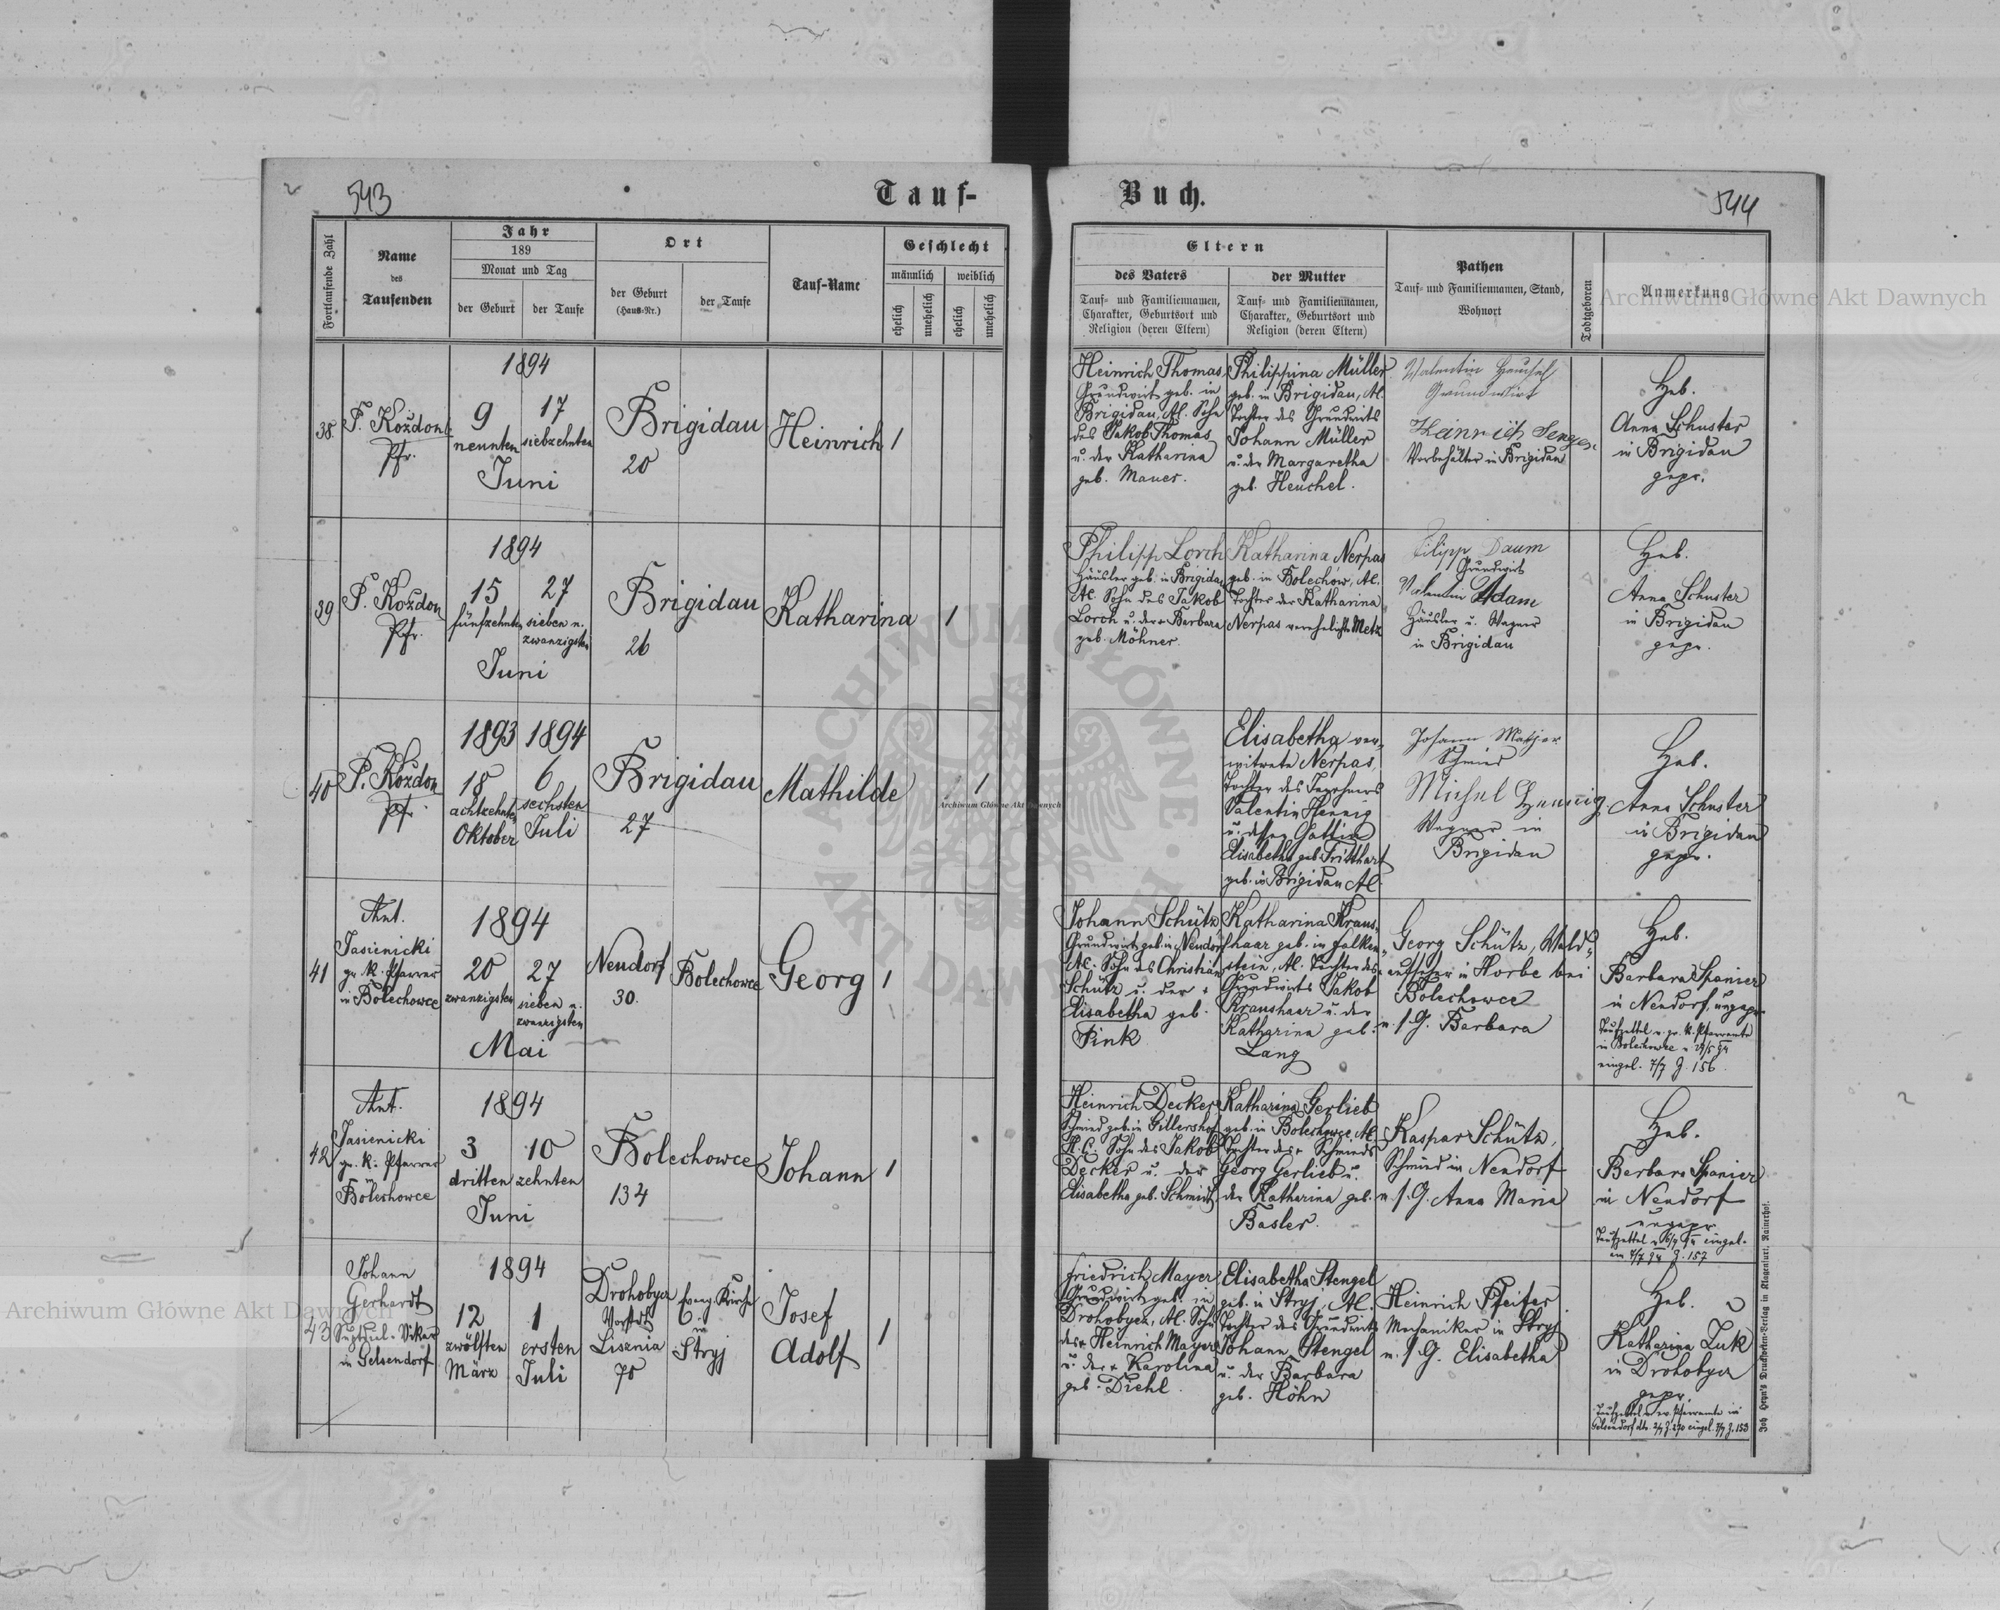 543
Tauf-
Buch.
544
Fortlaufende Zahl
Name
des
Taufenden
Jahr
189
Monat und Tag
der Geburt
der Taufe
Ort
der Geburt
(Haus-Nr.)
der Taufe
Tauf-Name
Geschlecht
männlich
weiblich
ehelich
unehelich
ehelich
unehelich
Eltern
des Vaters
Tauf- und Familiennamen,
Charakter, Geburtsort und
Religion (deren Eltern)
der Mutter
Tauf- und Familiennamen,
Charakter, Geburtsort und
Religion (deren Eltern)
Pathen
Tauf- und Familiennamen, Stand,
Wohnort
Todtgeboren
Anmerkung
38.
P. Koždon
Pfr.
1894
9
neunten
17
siebzehnten
Juni
Brigidau
20
Heinrich
1
Heinrich Thomas,
Grundwirt geb. in
Brigidau, AC. Sohn
des Jakob Thomas
u. der Katharina
geb. Mauer.
Philippina Müller
geb. in Brigidau, AC.
Tochter des Grundwirts
Johann Müller
u. der Margaretha
geb. Heuchel.
Valentin
Grundwirt
Heinrich
in Brigidau
Heb.
Anna Schuster
in Brigidau
gepr.
39
P. Koždon
Pfr.
1894
15
fünfzehnten
27
sieben u.
zwanzigsten
Juni
Brigidau
26
Katharina
1
Philipp Lorch
Häusler geb. in Brigidau
AC. Sohn des Jakob
Lorch u. der + Barbara
geb. Möhner.
Katharina Nerpas
geb. in Bolechów, AC.
Tochter der Katharina
Nerpas verehelichte Metz
Filipp Daum
Grundwirt
Valentin Adam
Häusler u. Wagner
in Brigidau
Heb.
Anna Schuster
in Brigidau
gepr.
40
P. Koždon
Pfr.
1893
18
achtzehnten
Oktober
1894
6
sechsten
Juli
Brigidau
27
Mathilde
1
Elisabetha ver-
witwete Nerpas,
Tochter des
Valentin Hennig
u. dessen Gattin
Elisabetha geb. Fritthart
geb. in Brigidau AC.
Johann
Schmied
Michel Hennig
Wagner in
Brigidau
Heb.
Anna Schuster
in Brigidau
gepr.
41
Ant.
Jasienicki
gr. k. Pfarrer
in Bolechowce
1894
20
zwanzigsten
27
sieben u.
zwanzigsten
Mai
Neudorf
30.
Bolechowce
Georg
1
Johann Schütz
Grundwirt geb. in Neudorf
AC. Sohn des Christian
Schütz u. der +
Elisabetha geb.
Fink
Katharina Kraus-
haar geb. in Falken-
stein, AC. Tochter des
Grundwirts Jakob
Kraushaar u. der
Katharina geb.
Lang
Georg Schütz, Wald-
aufseher in Horbe bei
Bolechowce
u. s. G. Barbara
Heb.
Barbara Spanier
in Neudorf, ungepr.
Taufzettel v. gr. k. Pfarramte
in Bolechowce v. 29/5 94
eingel. 7/7 Z. 156.
42
Ant.
Jasienicki
gr. k. Pfarrer
in
Bolechowce
1894
3
dritten
10
zehnten
Juni
Bolechowce
134
Johann
1
Heinrich Decker
Schmied geb. in Gillershof
H.C. Sohn des Jakob
Decker u. der
Elisabetha geb. Schmidt
Katharina Gerlieb
geb. in Bolechowce, AC.
Tochter des + Schmieds
Georg Gerlieb u.
der Katharina geb.
Basler.
Kaspar Schütz,
Schmied in Neudorf
u. s. G. Anna Maria
Heb.
Barbara Spanier
in Neudorf
ungepr.
Taufzettel eingel.
am 7/7 94 Z. 157
43
Johann
Gerhardt
Vikar
in Gelsendorf
1894
12
zwölften
März
1
ersten
Juli
Drohobycz
Vorstdt
Lisznia
70
Evang. Kirche
in
Stryj
Josef
Adolf
1
Friedrich Mayer
Grundwirt geb. in
Drohobycz, AC. Sohn
des + Heinrich Mayer
u. der + Karolina
geb. Diehl.
Elisabetha Stengel
geb. in Stryj, AC.
Tochter des Grundwirts
Johann Stengel
u. der Barbara
geb. Höhn
Heinrich Pfeifer
Mechaniker in Stryj
u. s. G. Elisabetha
Heb.
Katharina Zuk
in Drohobycz
gepr.
Taufzettel v. ev. Pfarramte in
Gelsendorf eingel. 7/7 Z. 158
Joh. Heyn's Drucksorten-Verlag in Klagenfurt, Kleinerhof.
Archiwum Główne Akt Dawnych
Archiwum Główne Akt Dawnych
Archiwum Główne Akt Dawnych
ARCHIWUM GŁÓWNE
AKT DAWNYCH